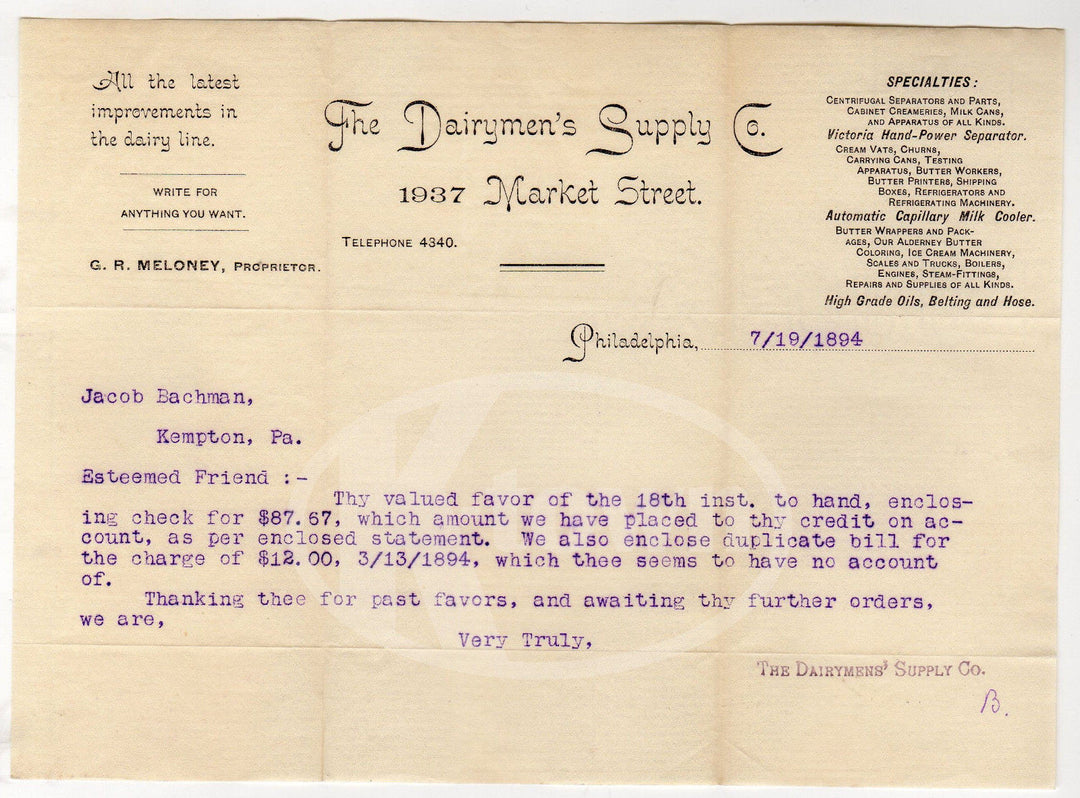 All the latest
improvements in
the dairy line.
WRITE FOR
ANYTHING YOU WANT.
G. R. MELONEY, PROPRIETOR.
The Dairymen's Supply Co.
1937 Market Street.
TELEPHONE 4340.
SPECIALTIES:
CENTRIFUGAL SEPARATORS AND PARTS,
CABINET CREAMERIES, MILK CANS,
AND APPARATUS OF ALL KINDS.
Victoria Hand-Power Separator.
CREAM VATS, CHURNS,
CARRYING CANS, TESTING
APPARATUS, BUTTER WORKERS,
BUTTER PRINTERS, SHIPPING
BOXES, REFRIGERATORS AND
REFRIGERATING MACHINERY.
Automatic Capillary Milk Cooler.
BUTTER WRAPPERS AND PACK-
AGES, OUR ALDERNEY BUTTER
COLORING, ICE CREAM MACHINERY,
SCALES AND TRUCKS, BOILERS,
ENGINES, STEAM-FITTINGS,
REPAIRS AND SUPPLIES OF ALL KINDS.
High Grade Oils, Belting and Hose.
Philadelphia, 7/19/1894
Jacob Bachman,
Kempton, Pa.
Esteemed Friend :-
Thy valued favor of the 18th inst. to hand, enclos-
ing check for $87.67, which amount we have placed to thy credit on ac-
count, as per enclosed statement. We also enclose duplicate bill for
the charge of $12.00, 3/13/1894, which thee seems to have no account
of.
Thanking thee for past favors, and awaiting thy further orders,
we are,
Very Truly,
THE DAIRYMENS' SUPPLY CO.
B.